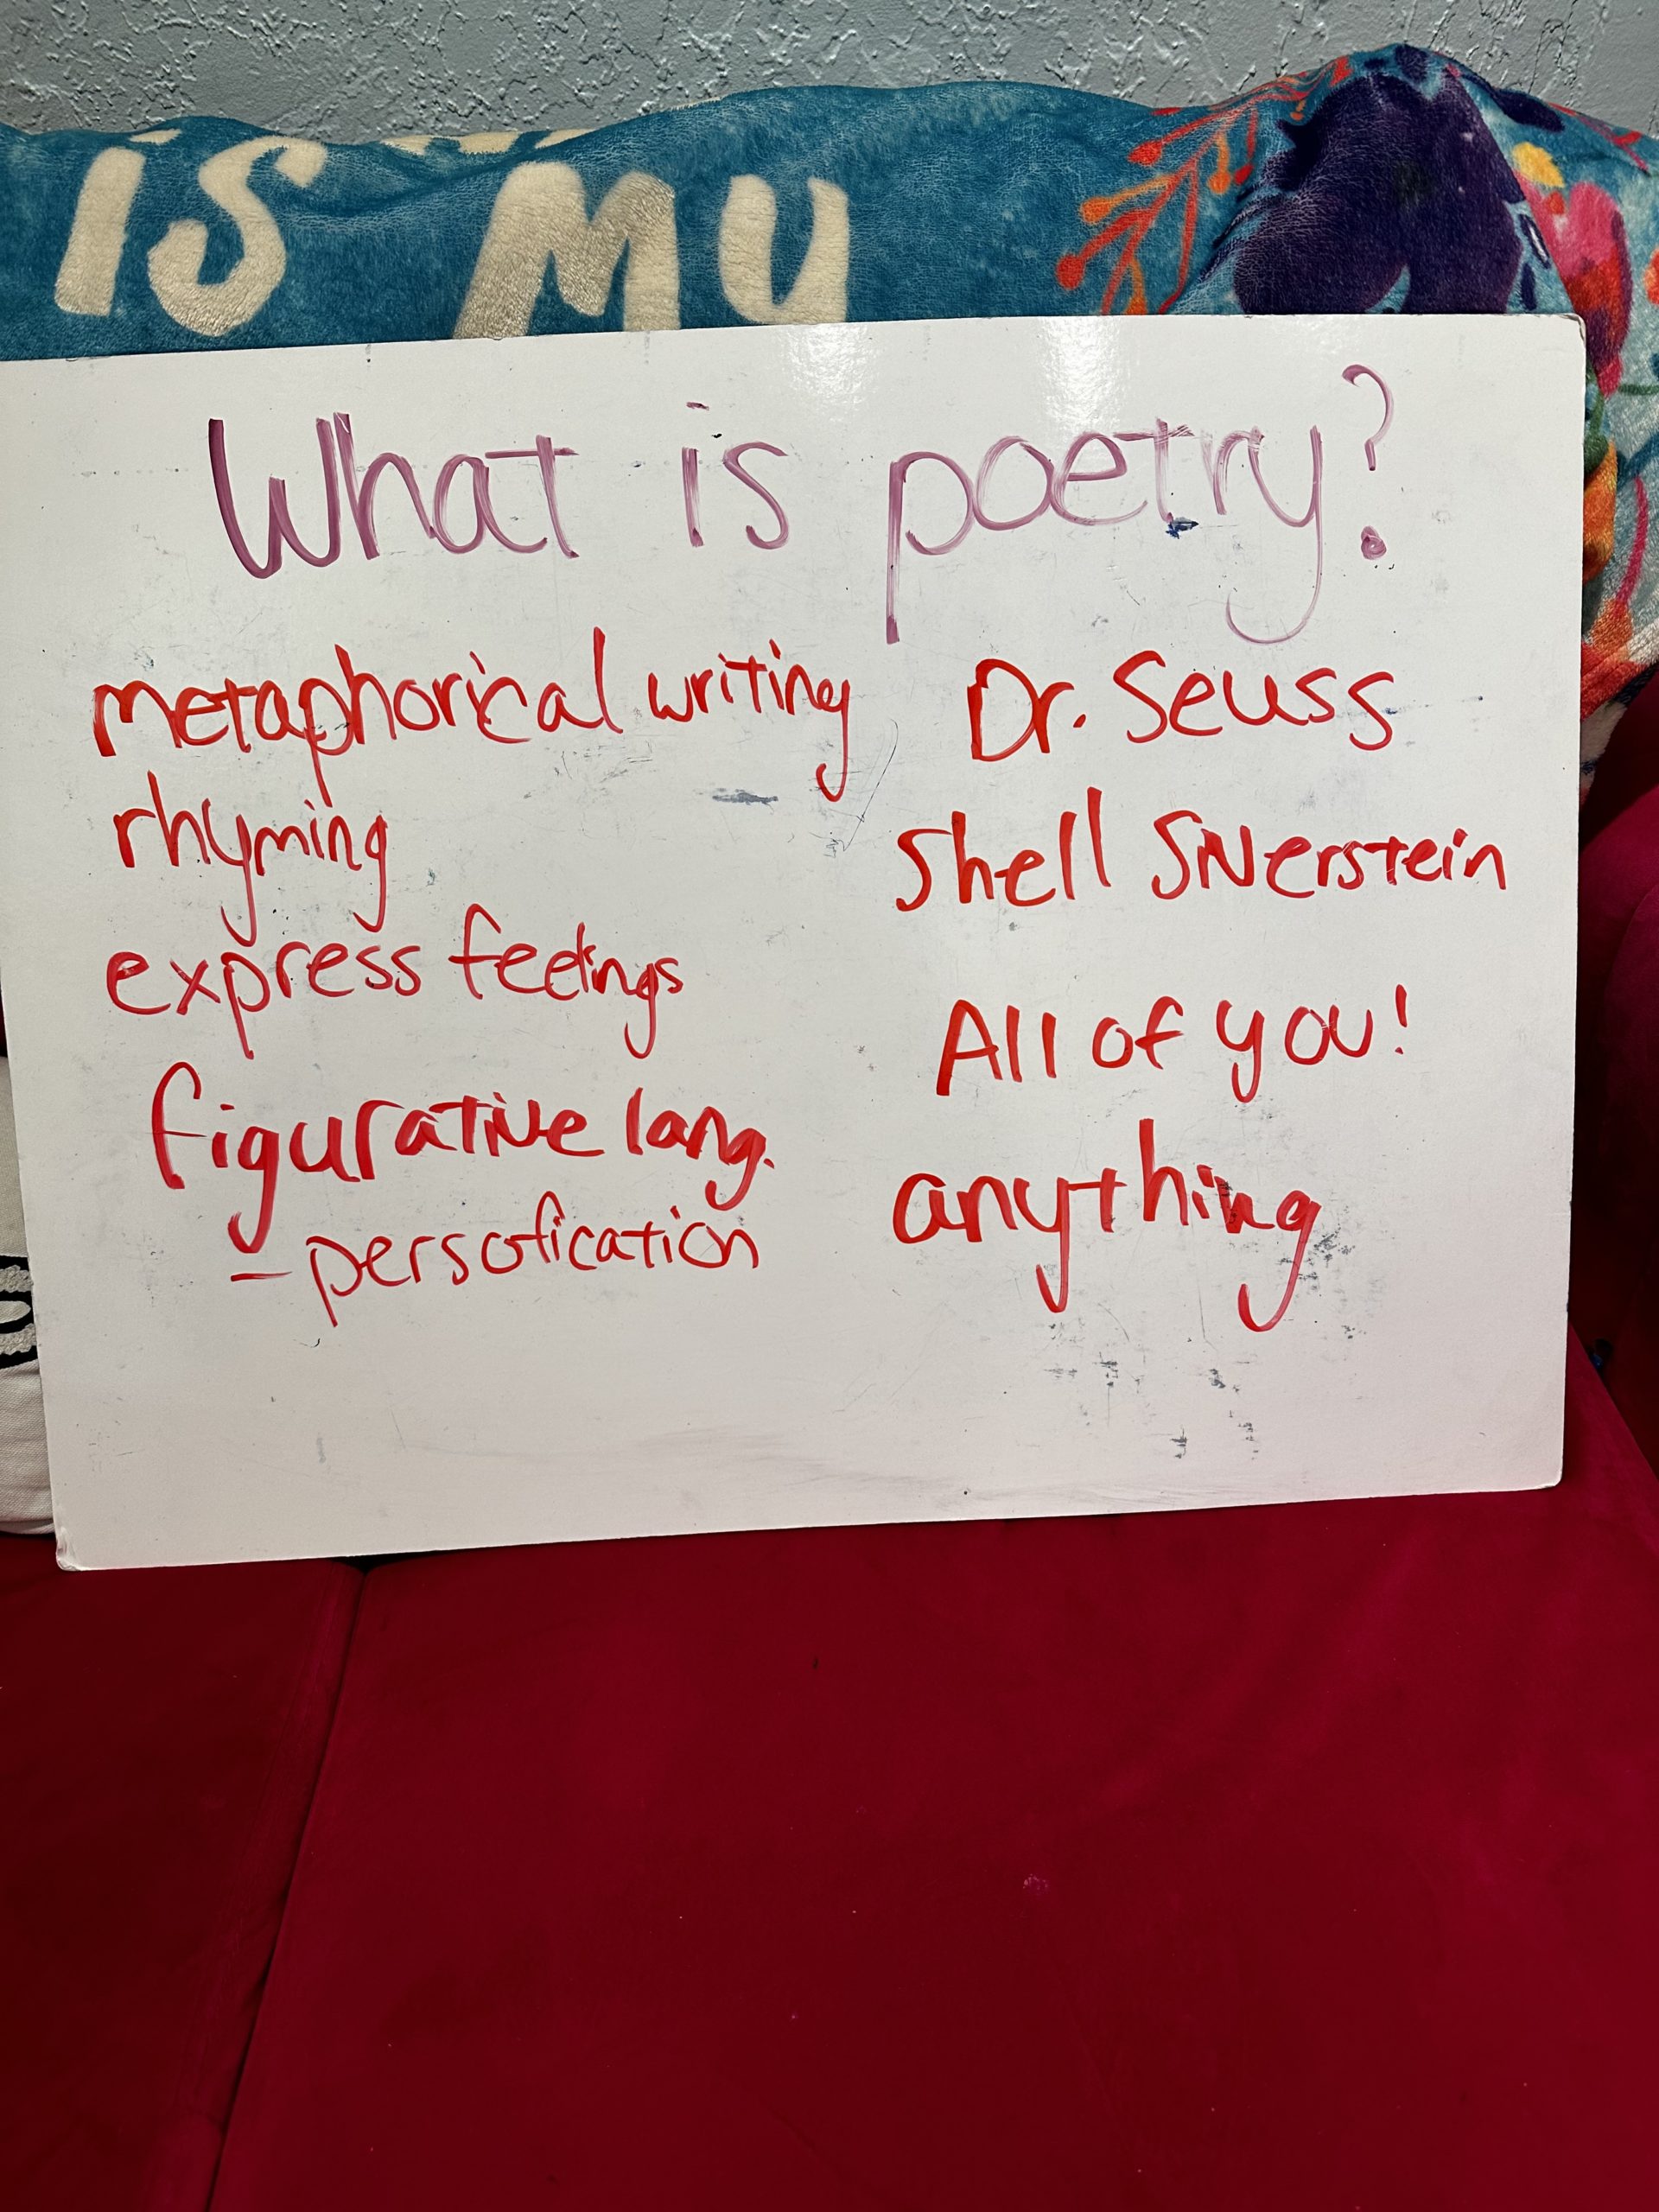 is my
What is poetry?
metaphorical writing
rhyming
express feelings
figurative lang.
- persofication
Dr. Seuss
Shell Silverstein
All of you!
anything